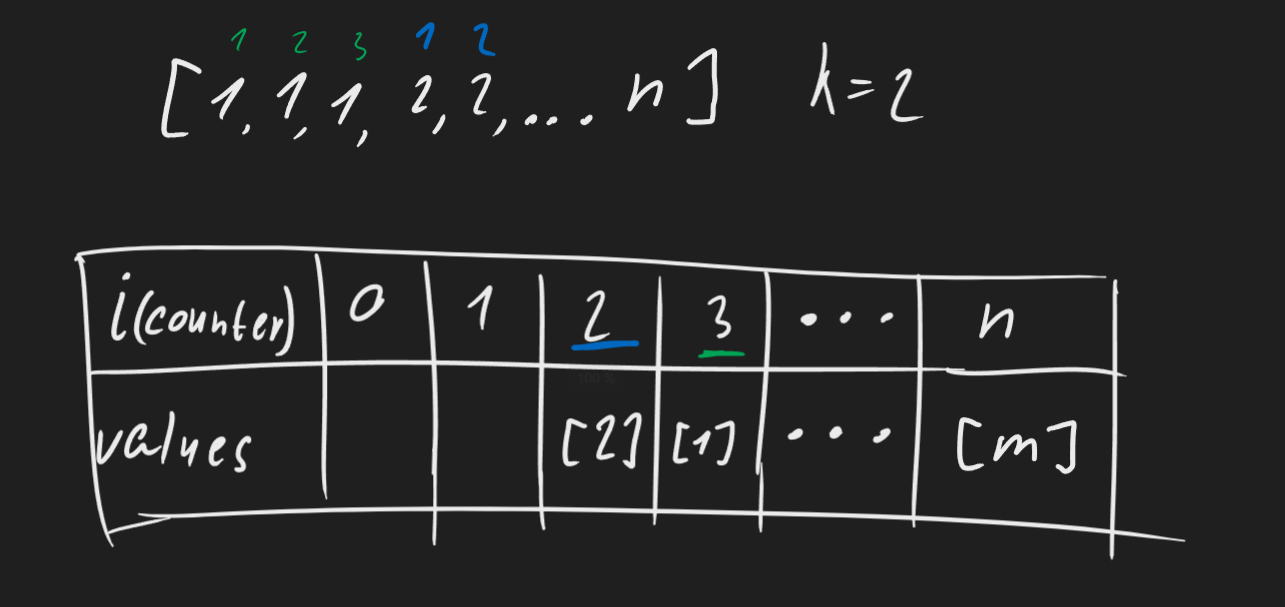 1 2 3 1 2
[1, 1, 1, 2, 2, ... n] k=2
i(counter) 0 1 2 3 ... n
values [2] [1] ... [m]